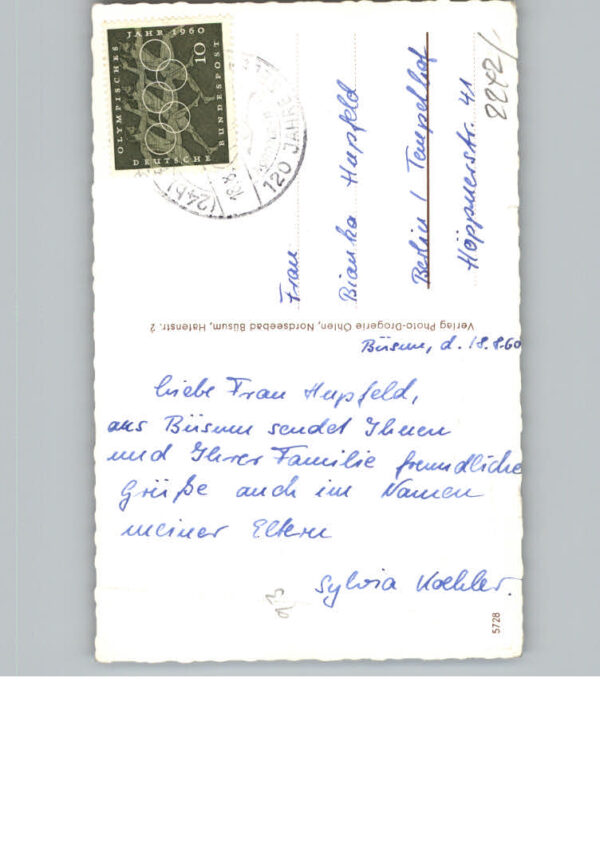 OLYMPISCHES
JAHR 1960
10
DEUTSCHE
BUNDESPOST
(24b)
120 JAHRE
Frau
Bianka Hupfeld
Berlin / Tempelhof
Höppnerstr. 41
2242/-
Verlag Photo-Drogerie Ohlen, Nordseebad Büsum, Hafenstr. 2
Büsum, d. 18.8.60
Liebe Frau Hupfeld,
aus Büsum sendet Ihnen
und Ihrer Familie freundliche
Grüße auch im Namen
meiner Eltern
Sylvia Koehler.
5728